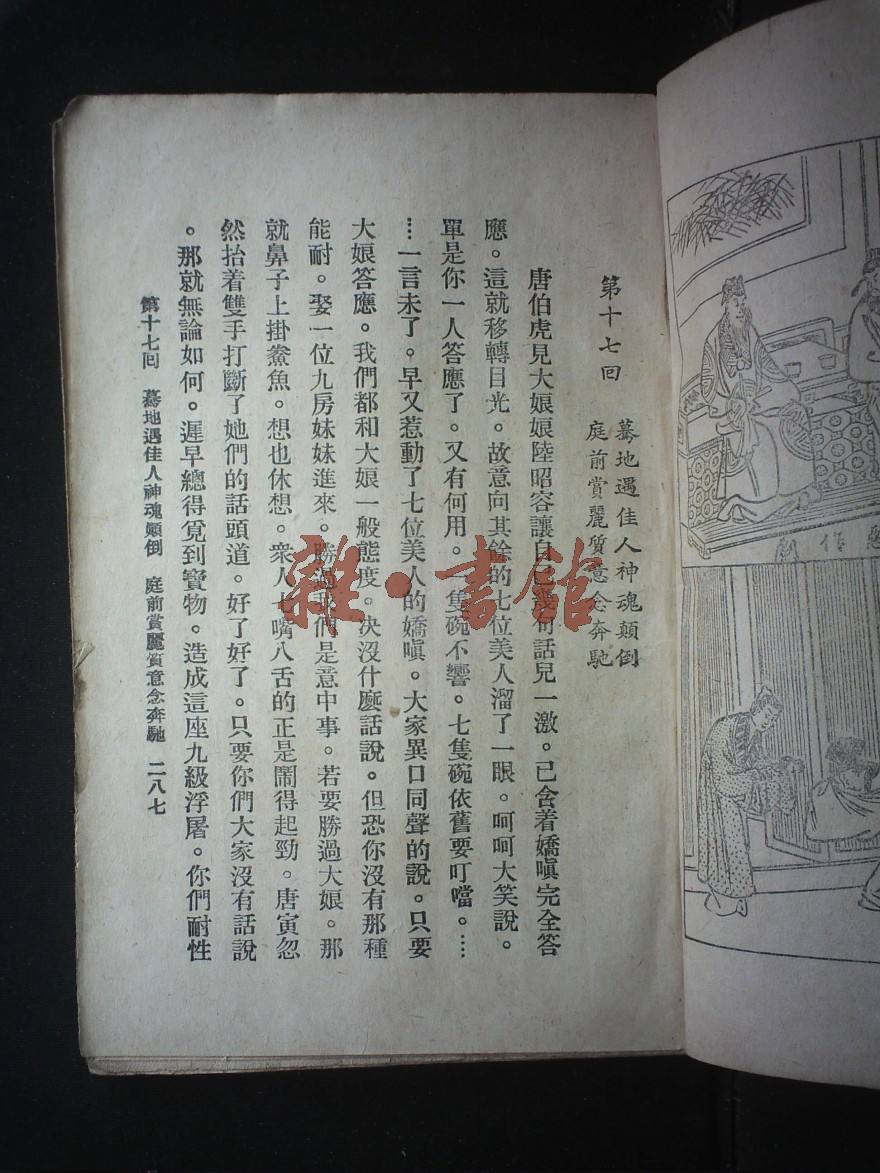 第十七回
驀地遇佳人神魂顛倒
庭前賞麗質意念奔馳
唐伯虎見大娘娘陸昭容讓自己幾句話兒一激。已含着嬌嗔完全答
應。這就移轉目光。故意向其餘的七位美人溜了一眼。呵呵大笑說。
單是你一人答應了。又有何用。一隻碗不響。七隻碗依舊要叮噹。……
…一言未了。早又惹動了七位美人的嬌嗔。大家異口同聲的說。只要
大娘答應。我們都和大娘一般態度。决沒什麼話說。但恐你沒有那種
能耐。娶一位九房妹妹進來。勝過我們是意中事。若要勝過大娘。那
就鼻子上掛鯗魚。想也休想。衆人七嘴八舌的正是鬧得起勁。唐寅忽
然抬着雙手打斷了她們的話頭道。好了好了。只要你們大家沒有話說
。那就無論如何。遲早總得覓到寶物。造成這座九級浮屠。你們耐性
第十七回 驀地遇佳人神魂顛倒 庭前賞麗質意念奔馳 二八七
雜·書館
作劇